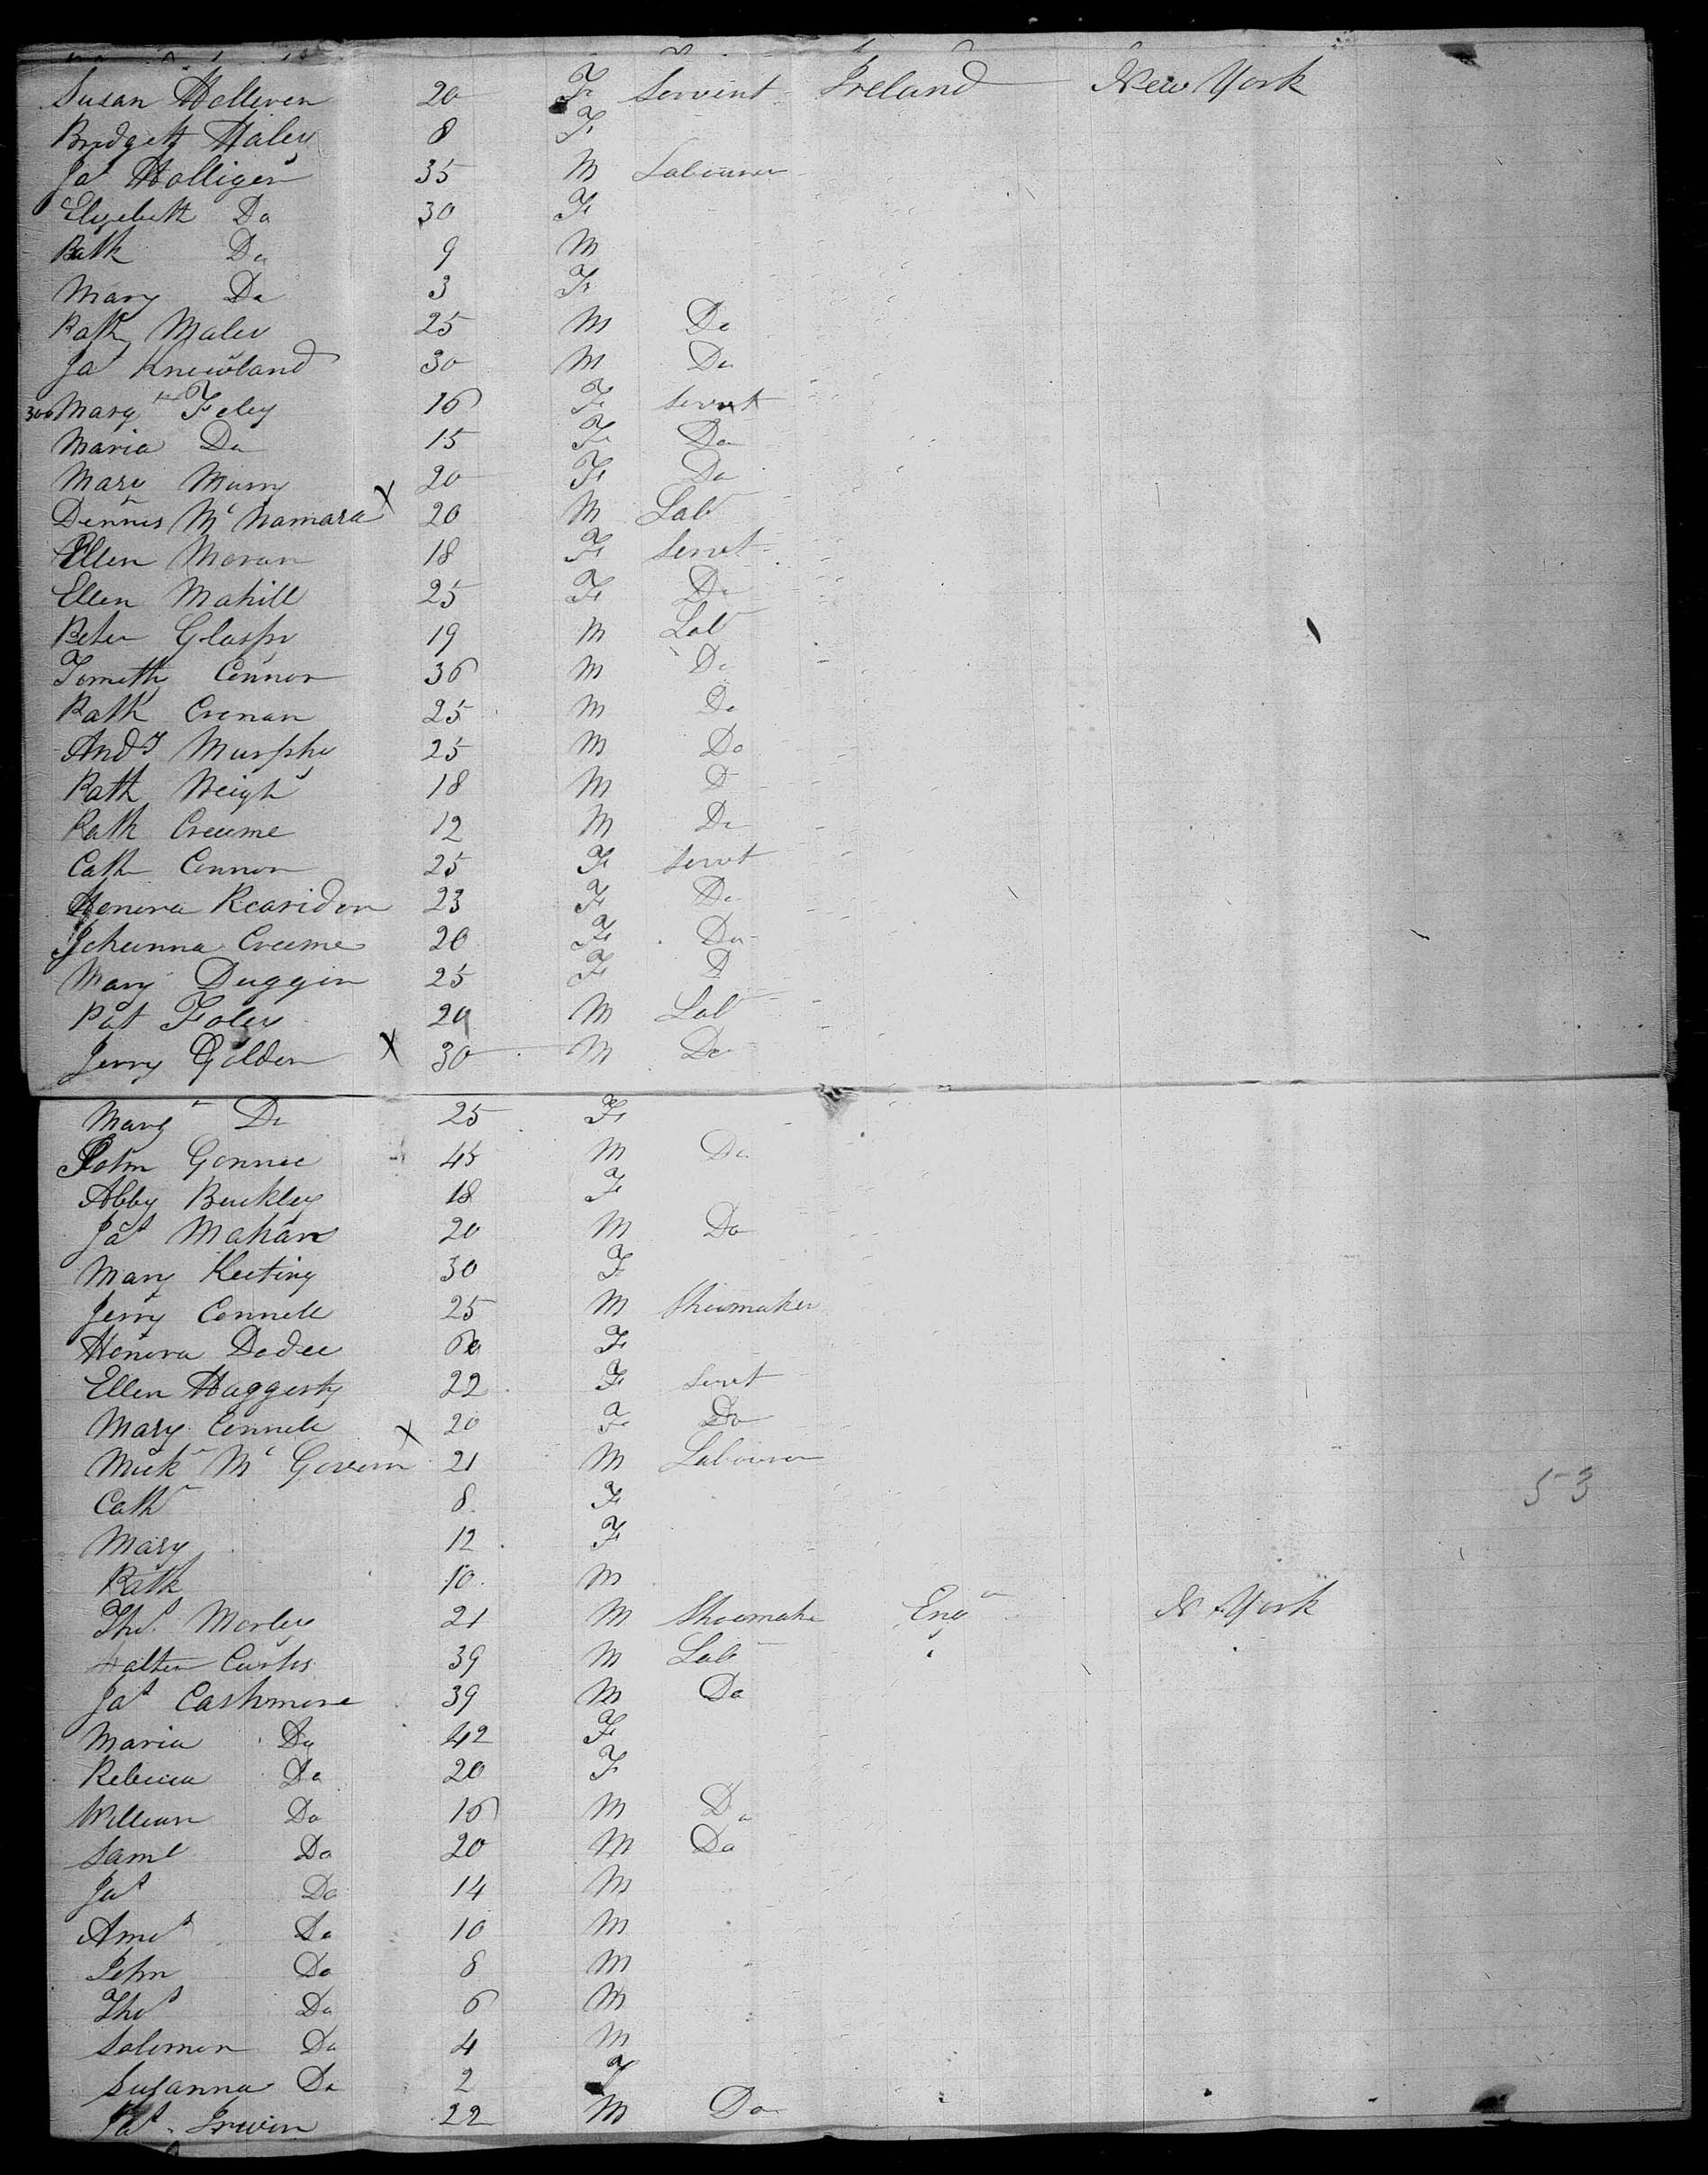 Susan Holleren 20 F Servint Ireland New York
Bridgett Haley 8 F
Jas Holligen 35 M Labourer
Elizebeth Do 30 F
Path Do 9 M
Mary Do 3 F
Path Maley 25 M Do
Jas Knewland 30 M Do
300 Margt Foley 16 F Servt
Maria Do 15 F Do
Mary Murry 20 F Do
Dennis McNamara X 20 M Labr
Ellen Moran 18 F Servt
Ellen Mahill 25 F Do
Peter Glaspy 19 M Labr
Tomoth Connor 36 M Do
Path Cronan 25 M Do
Andw Murphy 25 M Do
Path Neigh 18 M D
Path Creeme 12 M Do
Cath Connor 25 F Servt
Honora Rearidon 23 F Do
Johanna Creeme 20 F Do
Mary Duggin 25 F D
Pat Foley 29 M Labr
Jerry Golden X 30 M Do
Margt Do 25 F
John Gonnee 45 M Do
Abby Buckley 18 F
Jas Mahan 20 M Do
Mary Keeting 30 F
Jerry Connell 25 M Shoemaker
Honora Dodee 60 F
Ellen Haggerty 22 F Servt
Mary Connell 20 F Do
Mick Mc Govern X 21 M Labourer
Cath 8 F 53
Mary 12 F
Path 10 M
Thos Morley 21 M Shoemake Eng N York
Walter Curtis 39 M Labr
Jas Cashmore 39 M Do
Maria Do 42 F
Rebecca Do 20 F
William Do 16 M Do
Saml Do 20 M Do
Jas Do 14 M
Amos Do 10 M
John Do 8 M
Thos Do 6 M
Solomon Do 4 M
Susanna Do 2 F
Jas Irwin 22 M Do